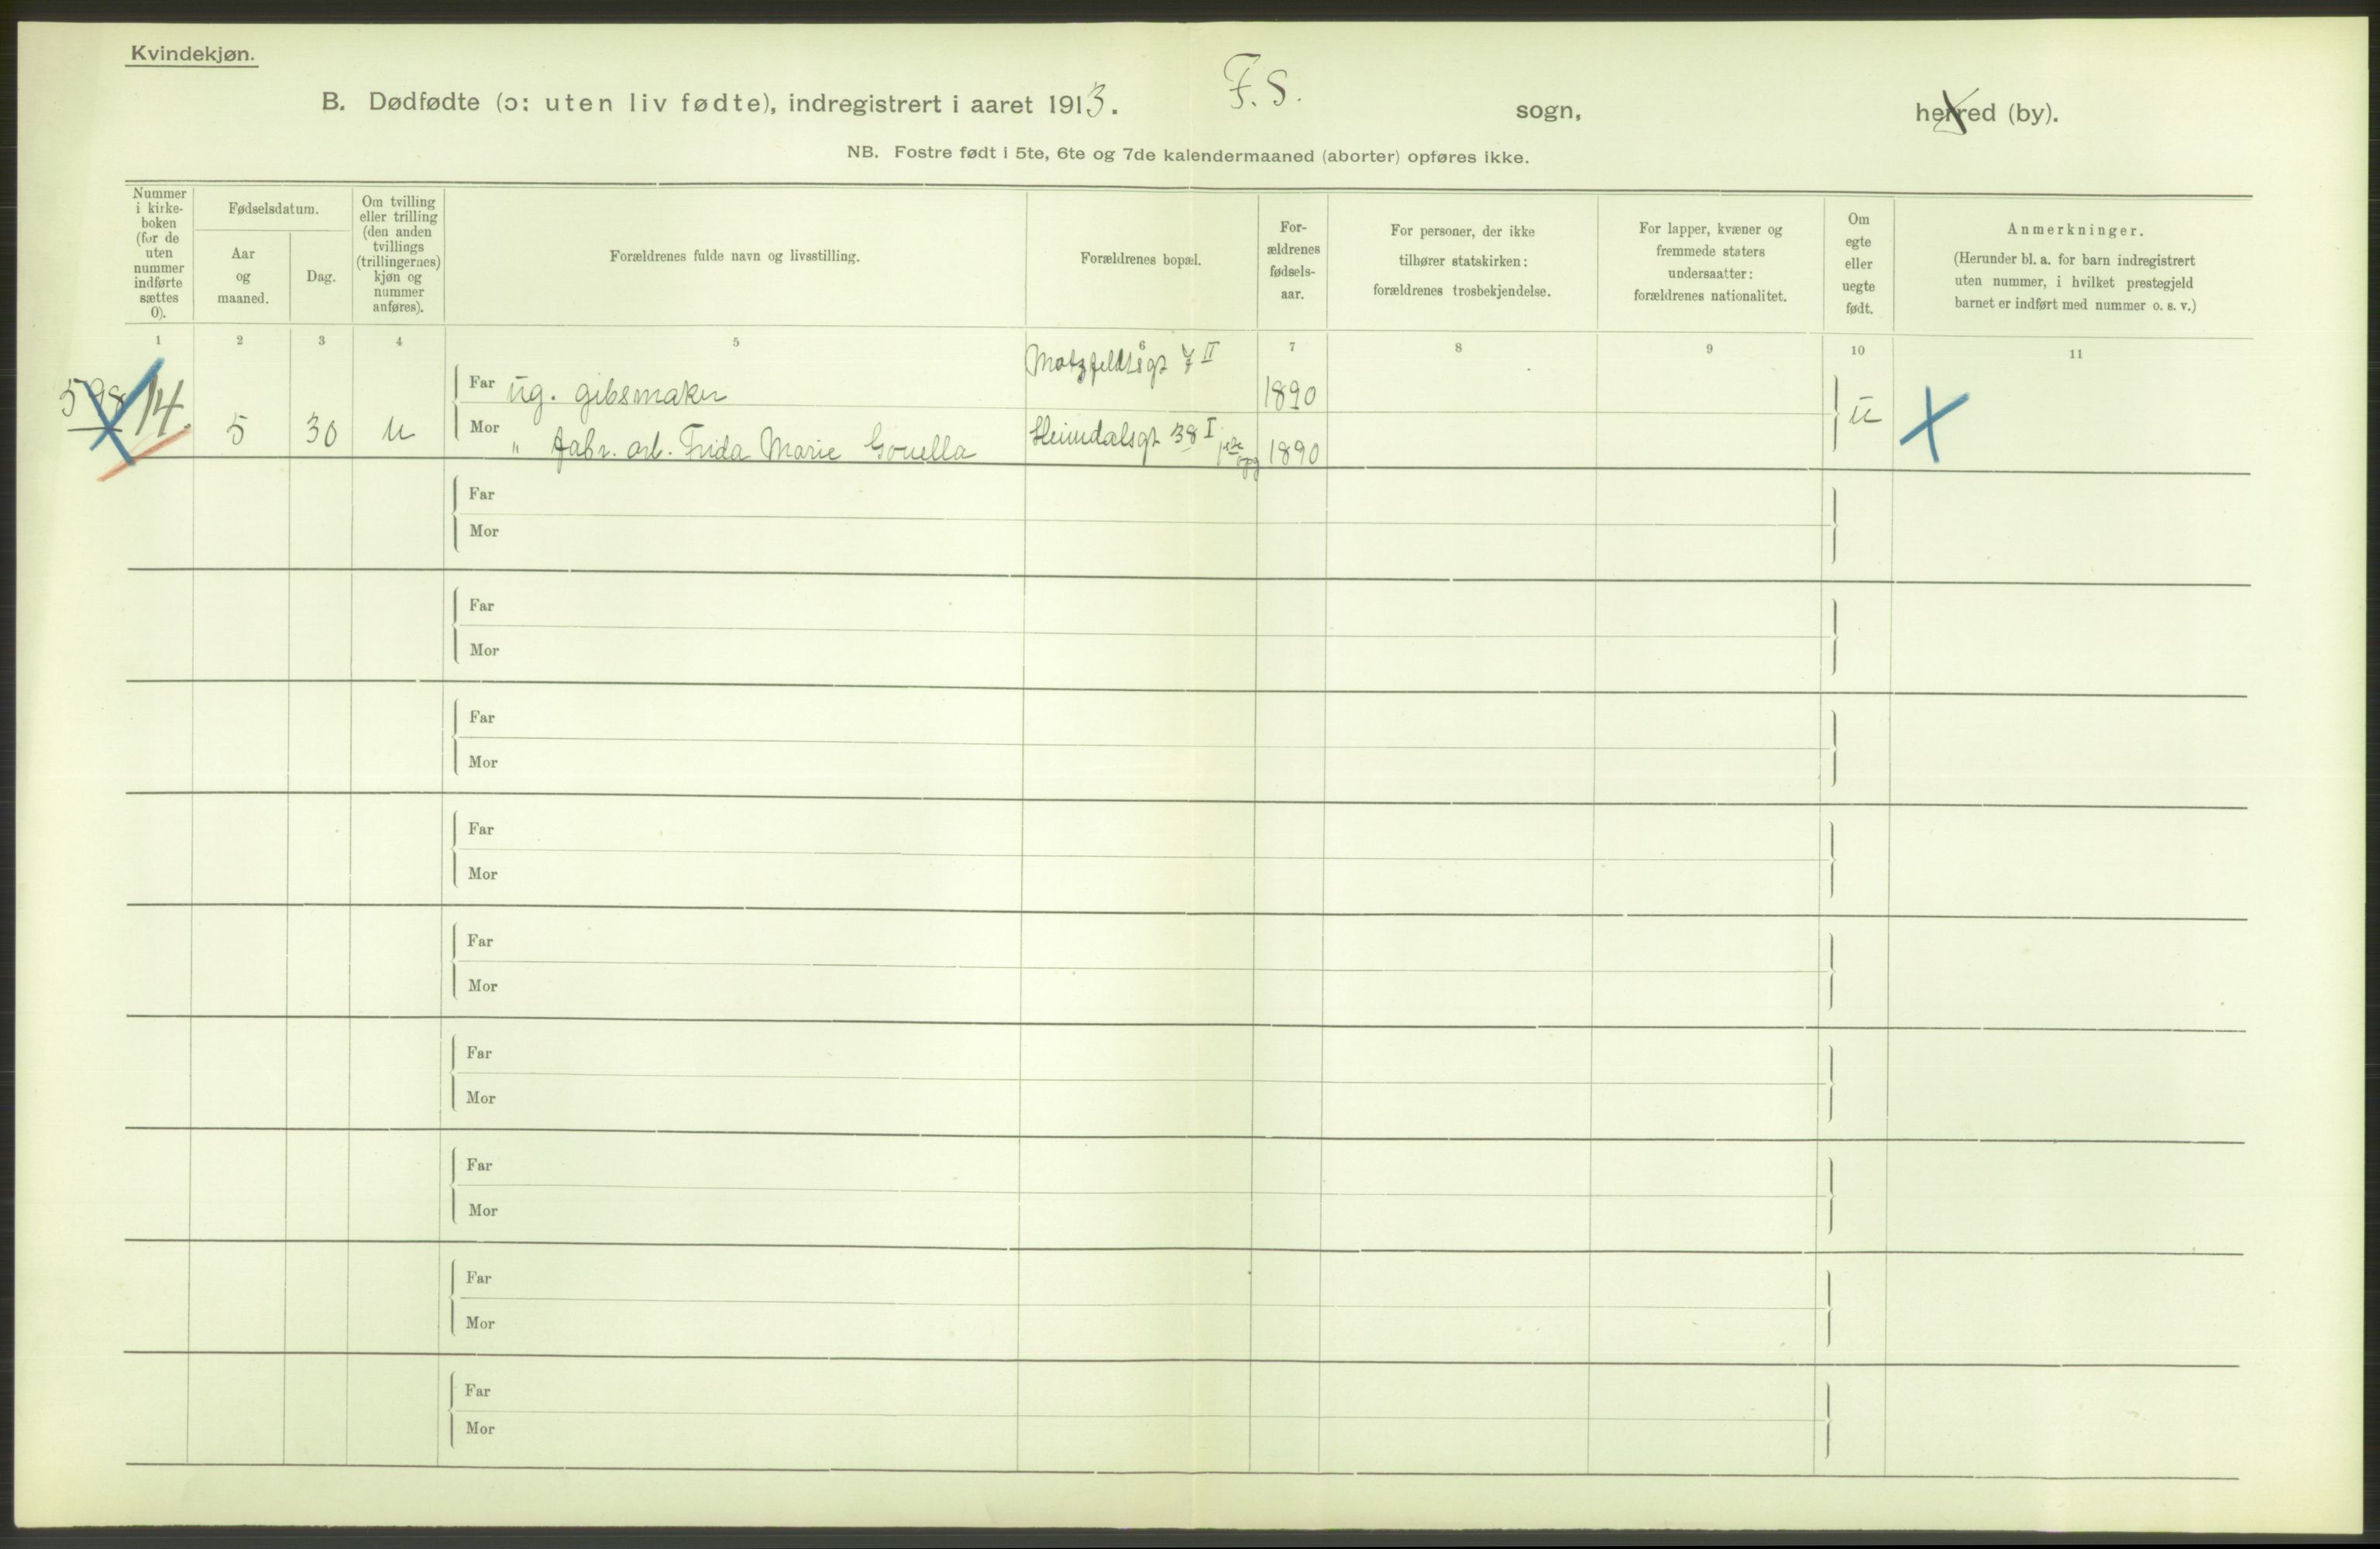 Kvindekjøn.
B. Dødfødte (ɔ: uten liv fødte), indregistrert i aaret 1913. F. S. sogn, herred (by).
NB. Fostre født i 5te, 6te og 7de kalendermaaned (aborter) opføres ikke.
Nummer
i kirke-
boken
(for de
uten
nummer
indførte
sættes
0).
Fødselsdatum.
Aar
og
maaned.
Dag.
Om tvilling
eller trilling
(den anden
tvillings
(trillingernes)
kjøn og
nummer
anføres).
Forældrenes fulde navn og livsstilling.
Forældrenes bopæl.
For-
ældrenes
fødsels-
aar.
For personer, der ikke
tilhører statskirken:
forældrenes trosbekjendelse.
For lapper, kvæner og
fremmede staters
undersaatter:
forældrenes nationalitet.
Om
egte
eller
uegte
født.
Anmerkninger.
(Herunder bl. a. for barn indregistrert
uten nummer, i hvilket prestegjeld
barnet er indført med nummer o. s. v.)
1 2 3 4 5 6 7 8 9 10 11
598 14. 5 30 u
Far ug. gibsmaker Motzfeldtsgt 7 II 1890
Mor " fabr. arb. Frida Marie Heimdalsgt 38 I 1890
u
Far
Mor
Far
Mor
Far
Mor
Far
Mor
Far
Mor
Far
Mor
Far
Mor
Far
Mor
Far
Mor